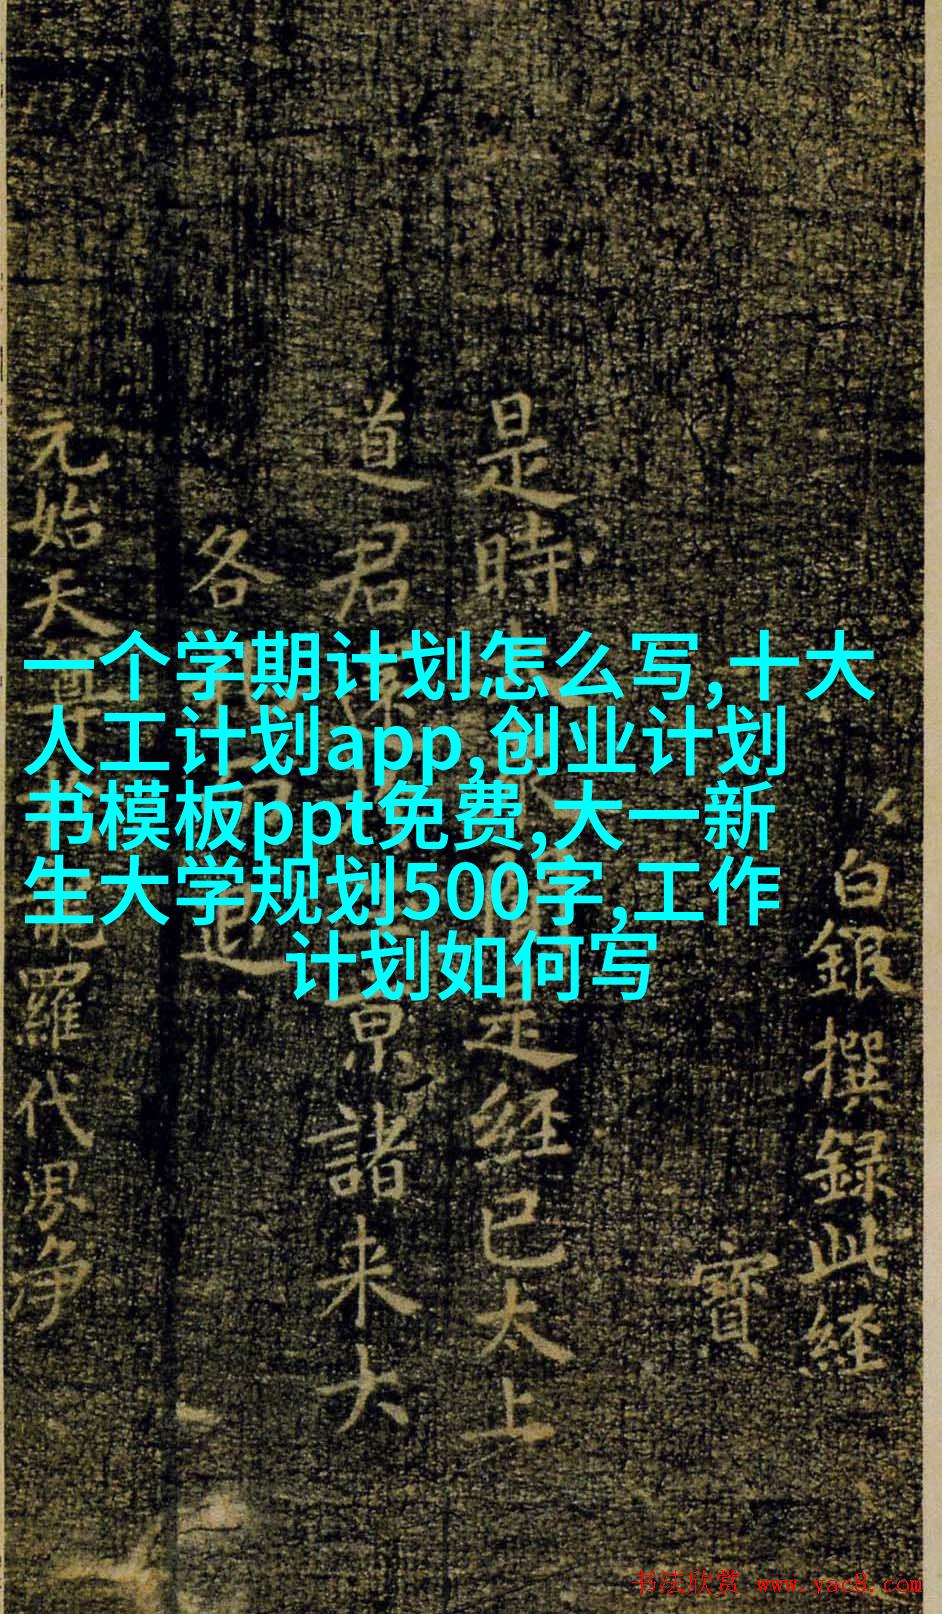 一个学期计划怎么写,十大
人工计划app,创业计划
书模板ppt免费,大一新
生大学规划500字,工作
计划如何写
白銀撰録此経
寶
是時
经已太上
道君
京諸来大
各
退
元始天尊
羅代界净
书法欣赏 www.yac8.com